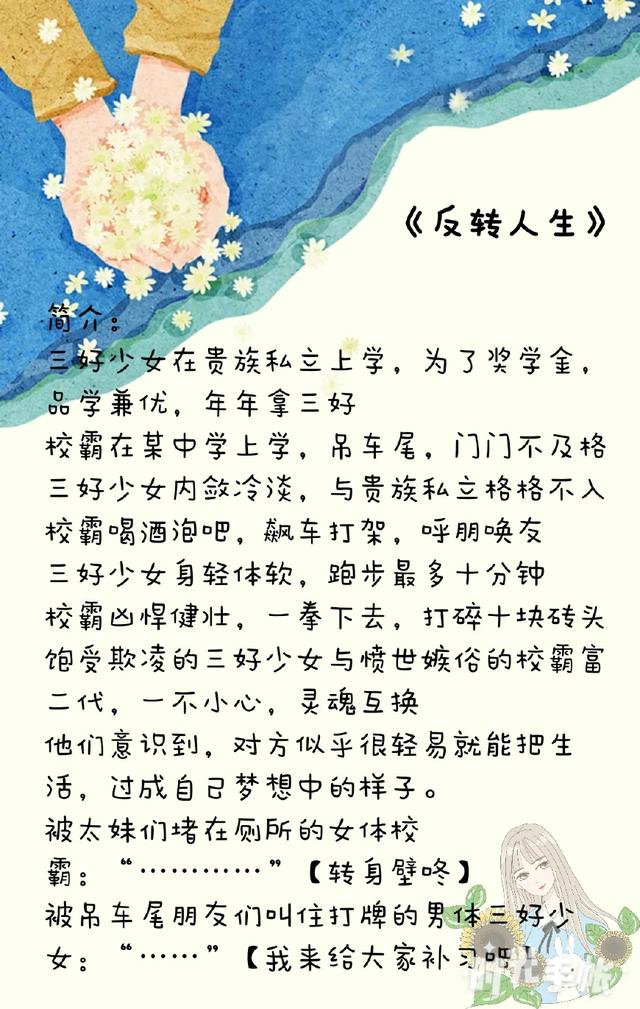 《反转人生》
简介：
三好少女在贵族私立上学，为了奖学金，
品学兼优，年年拿三好
校霸在某中学上学，吊车尾，门门不及格
三好少女内敛冷淡，与贵族私立格格不入
校霸喝酒泡吧，飙车打架，呼朋唤友
三好少女身轻体软，跑步最多十分钟
校霸凶悍健壮，一拳下去，打碎十块砖头
饱受欺凌的三好少女与愤世嫉俗的校霸富
二代，一不小心，灵魂互换
他们意识到，对方似乎很轻易就能把生
活，过成自己梦想中的样子。
被太妹们堵在厕所的女体校
霸：“…………”【转身壁咚】
被吊车尾朋友们叫住打牌的男体三好少
女：“……”【我来给大家补习吧】